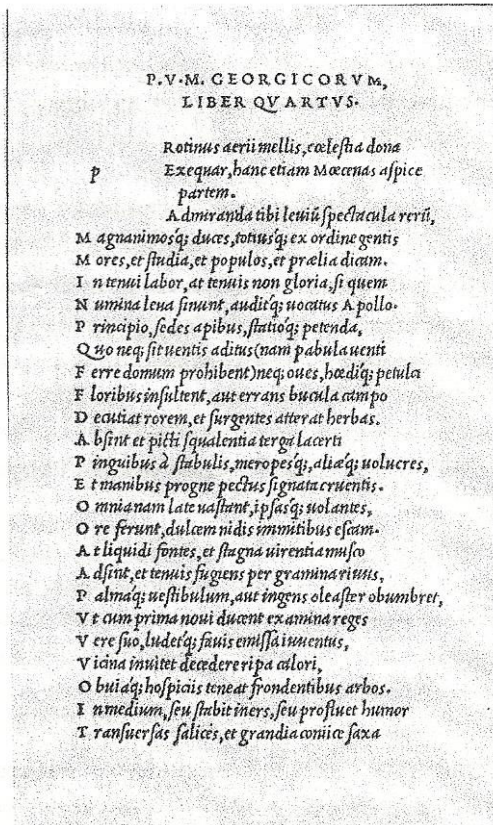 P.V.M. GEORGICORVM,
LIBER QVARTVS.
p Rotinus aerii mellis, cœlestia dona
Exequar, hanc etiam Mœcenas aspice
partem.
Admiranda tibi leuiũ spectacula rerũ,
M agnanimosq; duces, totiusq; ex ordine gentis
M ores, et studia, et populos, et prælia dicam.
I n tenui labor, at tenuis non gloria, si quem
N umina leua sinunt, auditq; uocatus Apollo.
P rincipio, sedes apibus, statioq; petenda,
Q uo neq; sit uentis aditus (nam pabula uenti
F erre domum prohibent) neq; oues, hœdiq; petulci
F loribus insultent, aut errans bucula campo
D ecutiat rorem, et surgentes atterat herbas.
A bsint et picti squalentia terga lacerti
P inguibus à stabulis, meropesq;, aliæq; uolucres,
E t manibus progne pectus signata cruentis.
O mnia nam late uastant, ipsasq; uolantes,
O re ferunt, dulcem nidis immitibus escam.
A t liquidi fontes, et stagna uirentia musco
A dsint, et tenuis fugiens per gramina riuus,
P almaq; uestibulum, aut ingens oleaster obumbret,
V t cum prima noui ducent examina reges
V ere suo, ludetq; fauis emissa iuuentus,
V icina inuitet decedere ripa calori,
O buiaq; hospiciis teneat frondentibus arbos.
I n medium, seu stabit iners, seu profluet humor
T ransuersas salices, et grandia coniice saxa